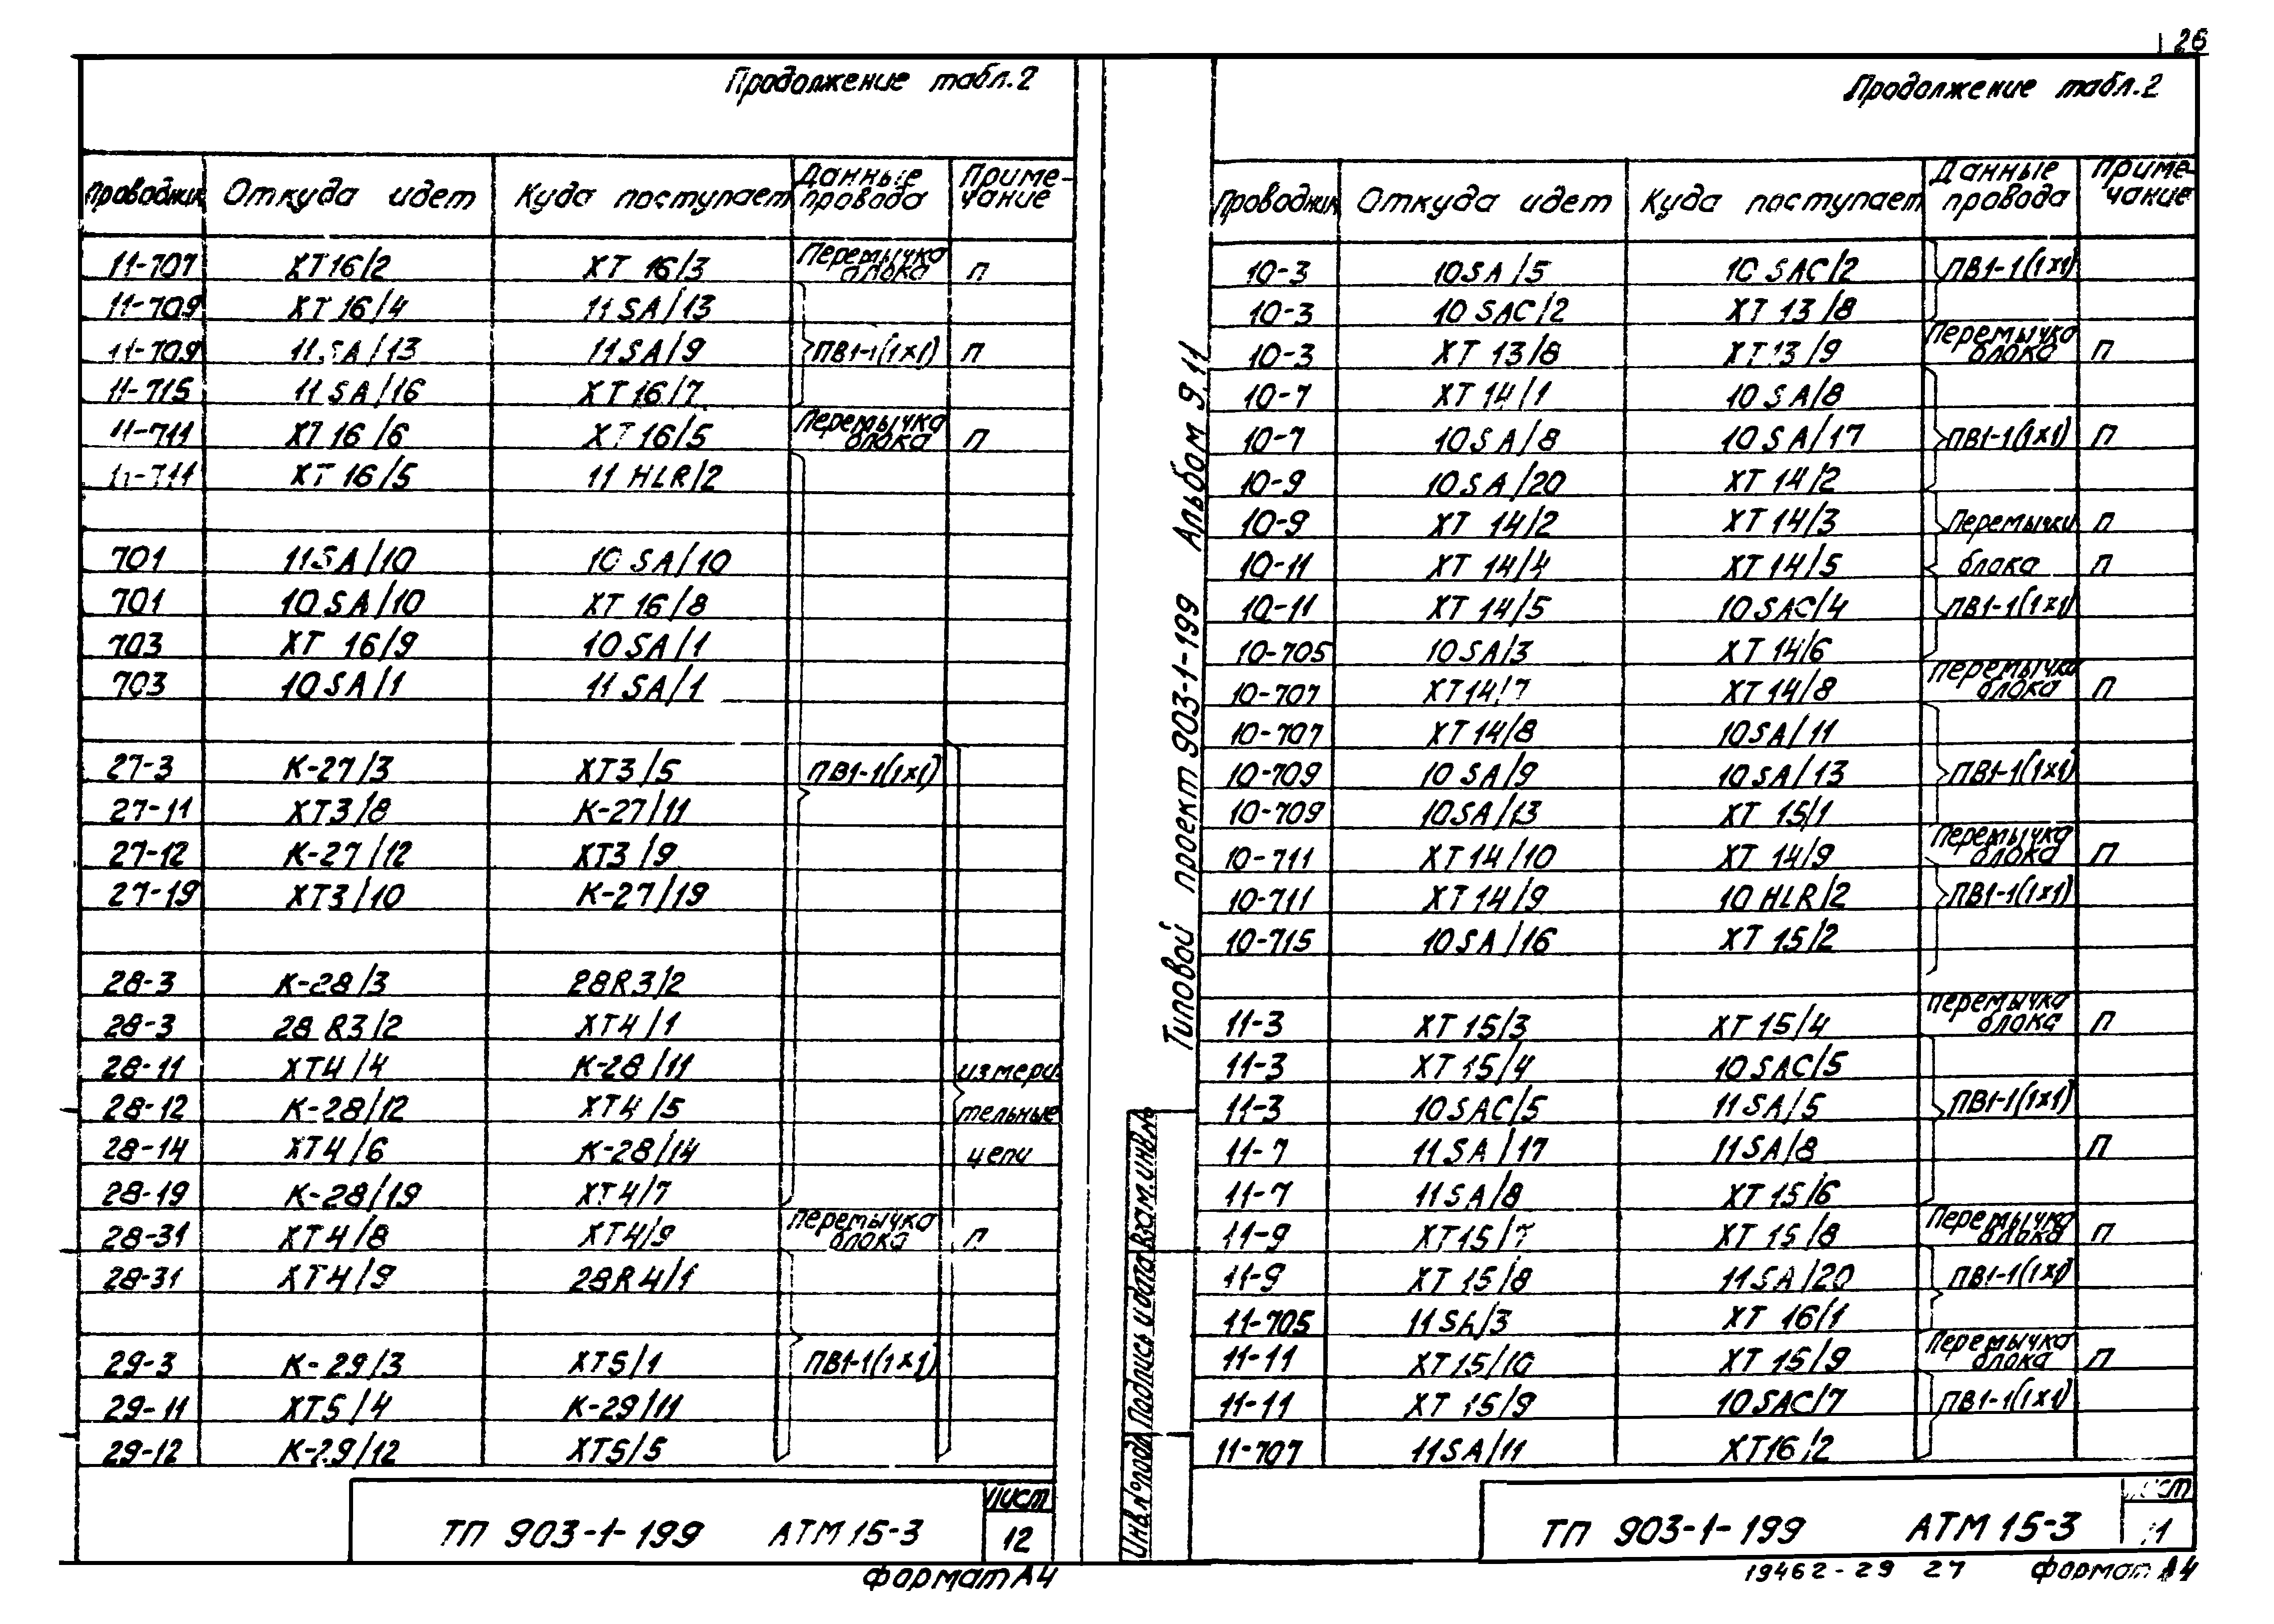 26
Продолжение табл.2
Проводник Откуда идет Куда поступает Данные провода Приме-чание
11-707 XT16/2 XT 16/3 Перемычка блока П
11-709 XT 16/4 11SA/13
11-709 11SA/13 11SA/9 ПВ1-1(1×1) П
11-715 11SA/16 XT16/7
11-711 XT16/6 XT16/5 Перемычка блока П
11-711 XT 16/5 11 HLR/2
701 11SA/10 10 SA/10
701 10SA/10 XT 16/8
703 XT 16/9 10SA/1
703 10SA/1 11SA/1
27-3 К-27/3 XT3/5 ПВ1-1(1×1)
27-11 XT3/8 К-27/11
27-12 К-27/12 XT3/9
27-19 XT3/10 К-27/19
28-3 К-28/3 28R3/2
28-3 28 R3/2 XT4/1
28-11 XT4/4 К-28/11 измери
28-12 К-28/12 XT4/5 тельные
28-14 XT4/6 К-28/14 цепи
28-19 К-28/19 XT4/7
28-31 XT4/8 XT4/9 Перемычка блока П
28-31 XT4/9 28R4/1
29-3 К-29/3 XT5/1 ПВ1-1(1×1)
29-11 XT5/4 К-29/11
29-12 К-29/12 XT5/5
ТП 903-1-199 АТМ15-3
Лист
12
Формат А4
Типовой проект 903-1-199 Альбом 9.11
Инв.№подл. Подпись и дата Взам.инв.№
Продолжение табл.2
Проводник Откуда идет Куда поступает Данные провода Приме-чание
10-3 10SA/5 10 SAC/2 ПВ1-1(1×1)
10-3 10 SAC/2 XT 13/8
10-3 XT 13/8 XT13/9 Перемычка блока П
10-7 XT 14/1 10SA/8
10-7 10SA/8 10SA/17 ПВ1-1(1×1) П
10-9 10SA/20 XT 14/2
10-9 XT 14/2 XT 14/3 Перемычки П
10-11 XT 14/4 XT 14/5 блока П
10-11 XT 14/5 10SAC/4 ПВ1-1(1×1)
10-705 10SA/3 XT 14/6
10-707 XT14/7 XT14/8 Перемычка блока П
10-707 XT14/8 10SA/11
10-709 10 SA/9 10SA/13 ПВ1-1(1×1)
10-709 10SA/13 XT 15/1
10-711 XT14/10 XT 14/9 Перемычка блока П
10-711 XT14/9 10 HLR/2 ПВ1-1(1×1)
10-715 10SA/16 XT 15/2
11-3 XT 15/3 XT 15/4 Перемычка блока П
11-3 XT 15/4 10SAC/5
11-3 10SAC/5 11SA/5 ПВ1-1(1×1)
11-7 11SA/17 11SA/8 П
11-7 11SA/8 XT 15/6
11-9 XT15/7 XT 15/8 Перемычка блока П
11-9 XT 15/8 11SA/20 ПВ1-1(1×1)
11-705 11SA/3 XT 16/1
11-11 XT15/10 XT 15/9 Перемычка блока П
11-11 XT 15/9 10SAC/7 ПВ1-1(1×1)
11-707 11SA/11 XT16/2
ТП 903-1-199 АТМ15-3
Лист
11
19462-29 27 Формат А4